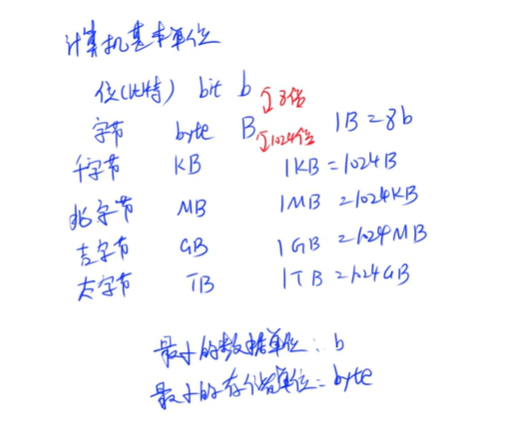 计算机基本单位
位(比特) bit b
8倍
字节 byte B 1B=8b
1024倍
千字节 KB 1KB=1024B
兆字节 MB 1MB=1024KB
吉字节 GB 1GB=1024MB
太字节 TB 1TB=1024GB
最小的数据单位: b
最小的存储单位: byte